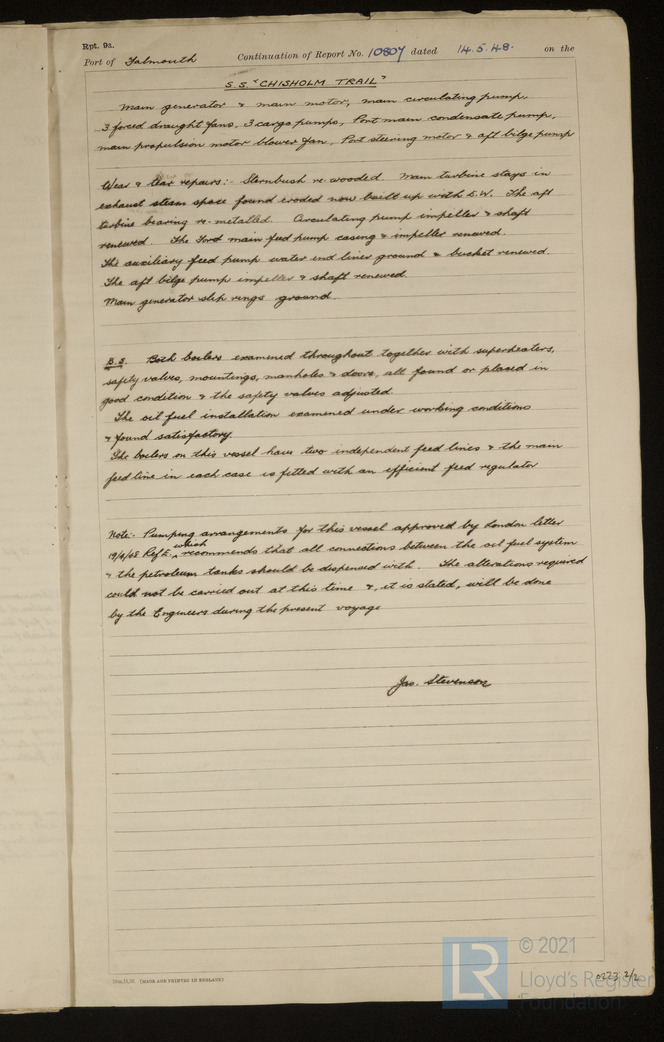 Rpt. 9a.
Port of Falmouth Continuation of Report No. 10807 dated 14.5.48. on the
S.S. "CHISHOLM TRAIL"
Main generator & main motor, main circulating pump,
3 forced draught fans, 3 cargo pumps, Port main condensate pump,
main propulsion motor blower fan, Port steering motor & aft bilge pump
Wear & tear repairs:- Sternbush re-wooded. Main turbine stays in
exhaust steam space found eroded now built up with E.W. The aft
turbine bearing re-metalled. Circulating pump impeller & shaft
renewed. The Ford main feed pump casing & impeller renewed.
The auxiliary feed pump water end liner ground & bucket renewed.
The aft bilge pump impeller & shaft renewed
Main generator slip rings ground.
B.S. Both boilers examined throughout together with superheaters,
safety valves, mountings, manholes & doors, all found or placed in
good condition & the safety valves adjusted.
The oil fuel installation examined under working conditions
& found satisfactory.
The boilers on this vessel have two independent feed lines & the main
feed line in each case is fitted with an efficient feed regulator
Note:- Pumping arrangements for this vessel approved by London letter
19/4/48 Ref E. which recommends that all connections between the oil fuel system
& the petroleum tanks should be dispensed with. The alterations required
could not be carried out at this time &, it is stated, will be done
by the Engineers during the present voyage
Jas. Stevenson
(MADE AND PRINTED IN ENGLAND)
0223 2/2
LR
© 2021
Lloyd's Register
Foundation